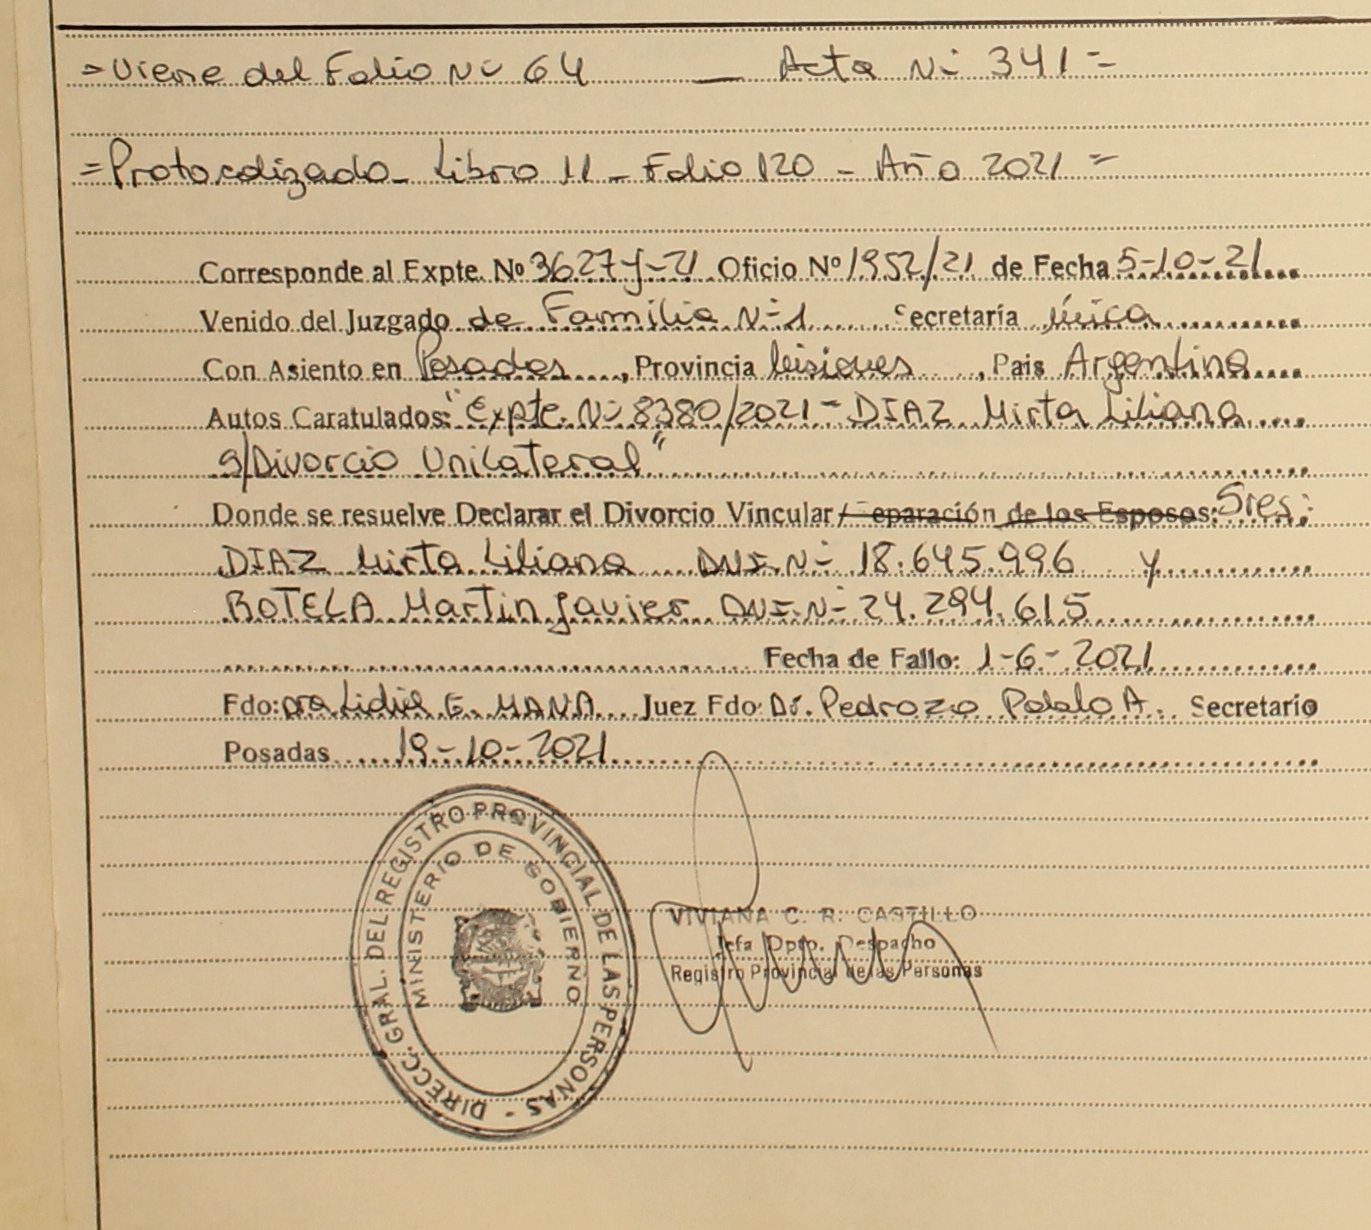 =Viene del Folio Nº 64 — Acta Nº 341=
=Protocolizado- Libro 11 - Folio 120 - Año 2021=
Corresponde al Expte. Nº 3627-Y-21 Oficio Nº 1952/21 de Fecha 5-10-21
Venido del Juzgado de Familia Nº 1 Secretaría única
Con Asiento en Posadas, Provincia Misiones, Pais Argentina
Autos Caratulados: "Expte. Nº 8380/2021 - DIAZ Mirta Liliana
s/Divorcio Unilateral"
Donde se resuelve Declarar el Divorcio Vincular / Separación de los Esposos: Sres:
DIAZ Mirta Liliana DNI.Nº 18.645.996 y
BOTELA Martin Javier DNI.Nº 24.294.615
Fecha de Fallo: 1-6-2021
Fdo: Dra Lidia E. Juez Fdo: Dr. Pedrozo Pablo A. Secretario
Posadas 19-10-2021
DIRECC. GRAL. DEL REGISTRO PROVINCIAL DE LAS PERSONAS -
MINISTERIO DE GOBIERNO
VIVIANA C. R. CASTILLO
Jefa Dpto. Despacho
Registro Provincial de las Personas